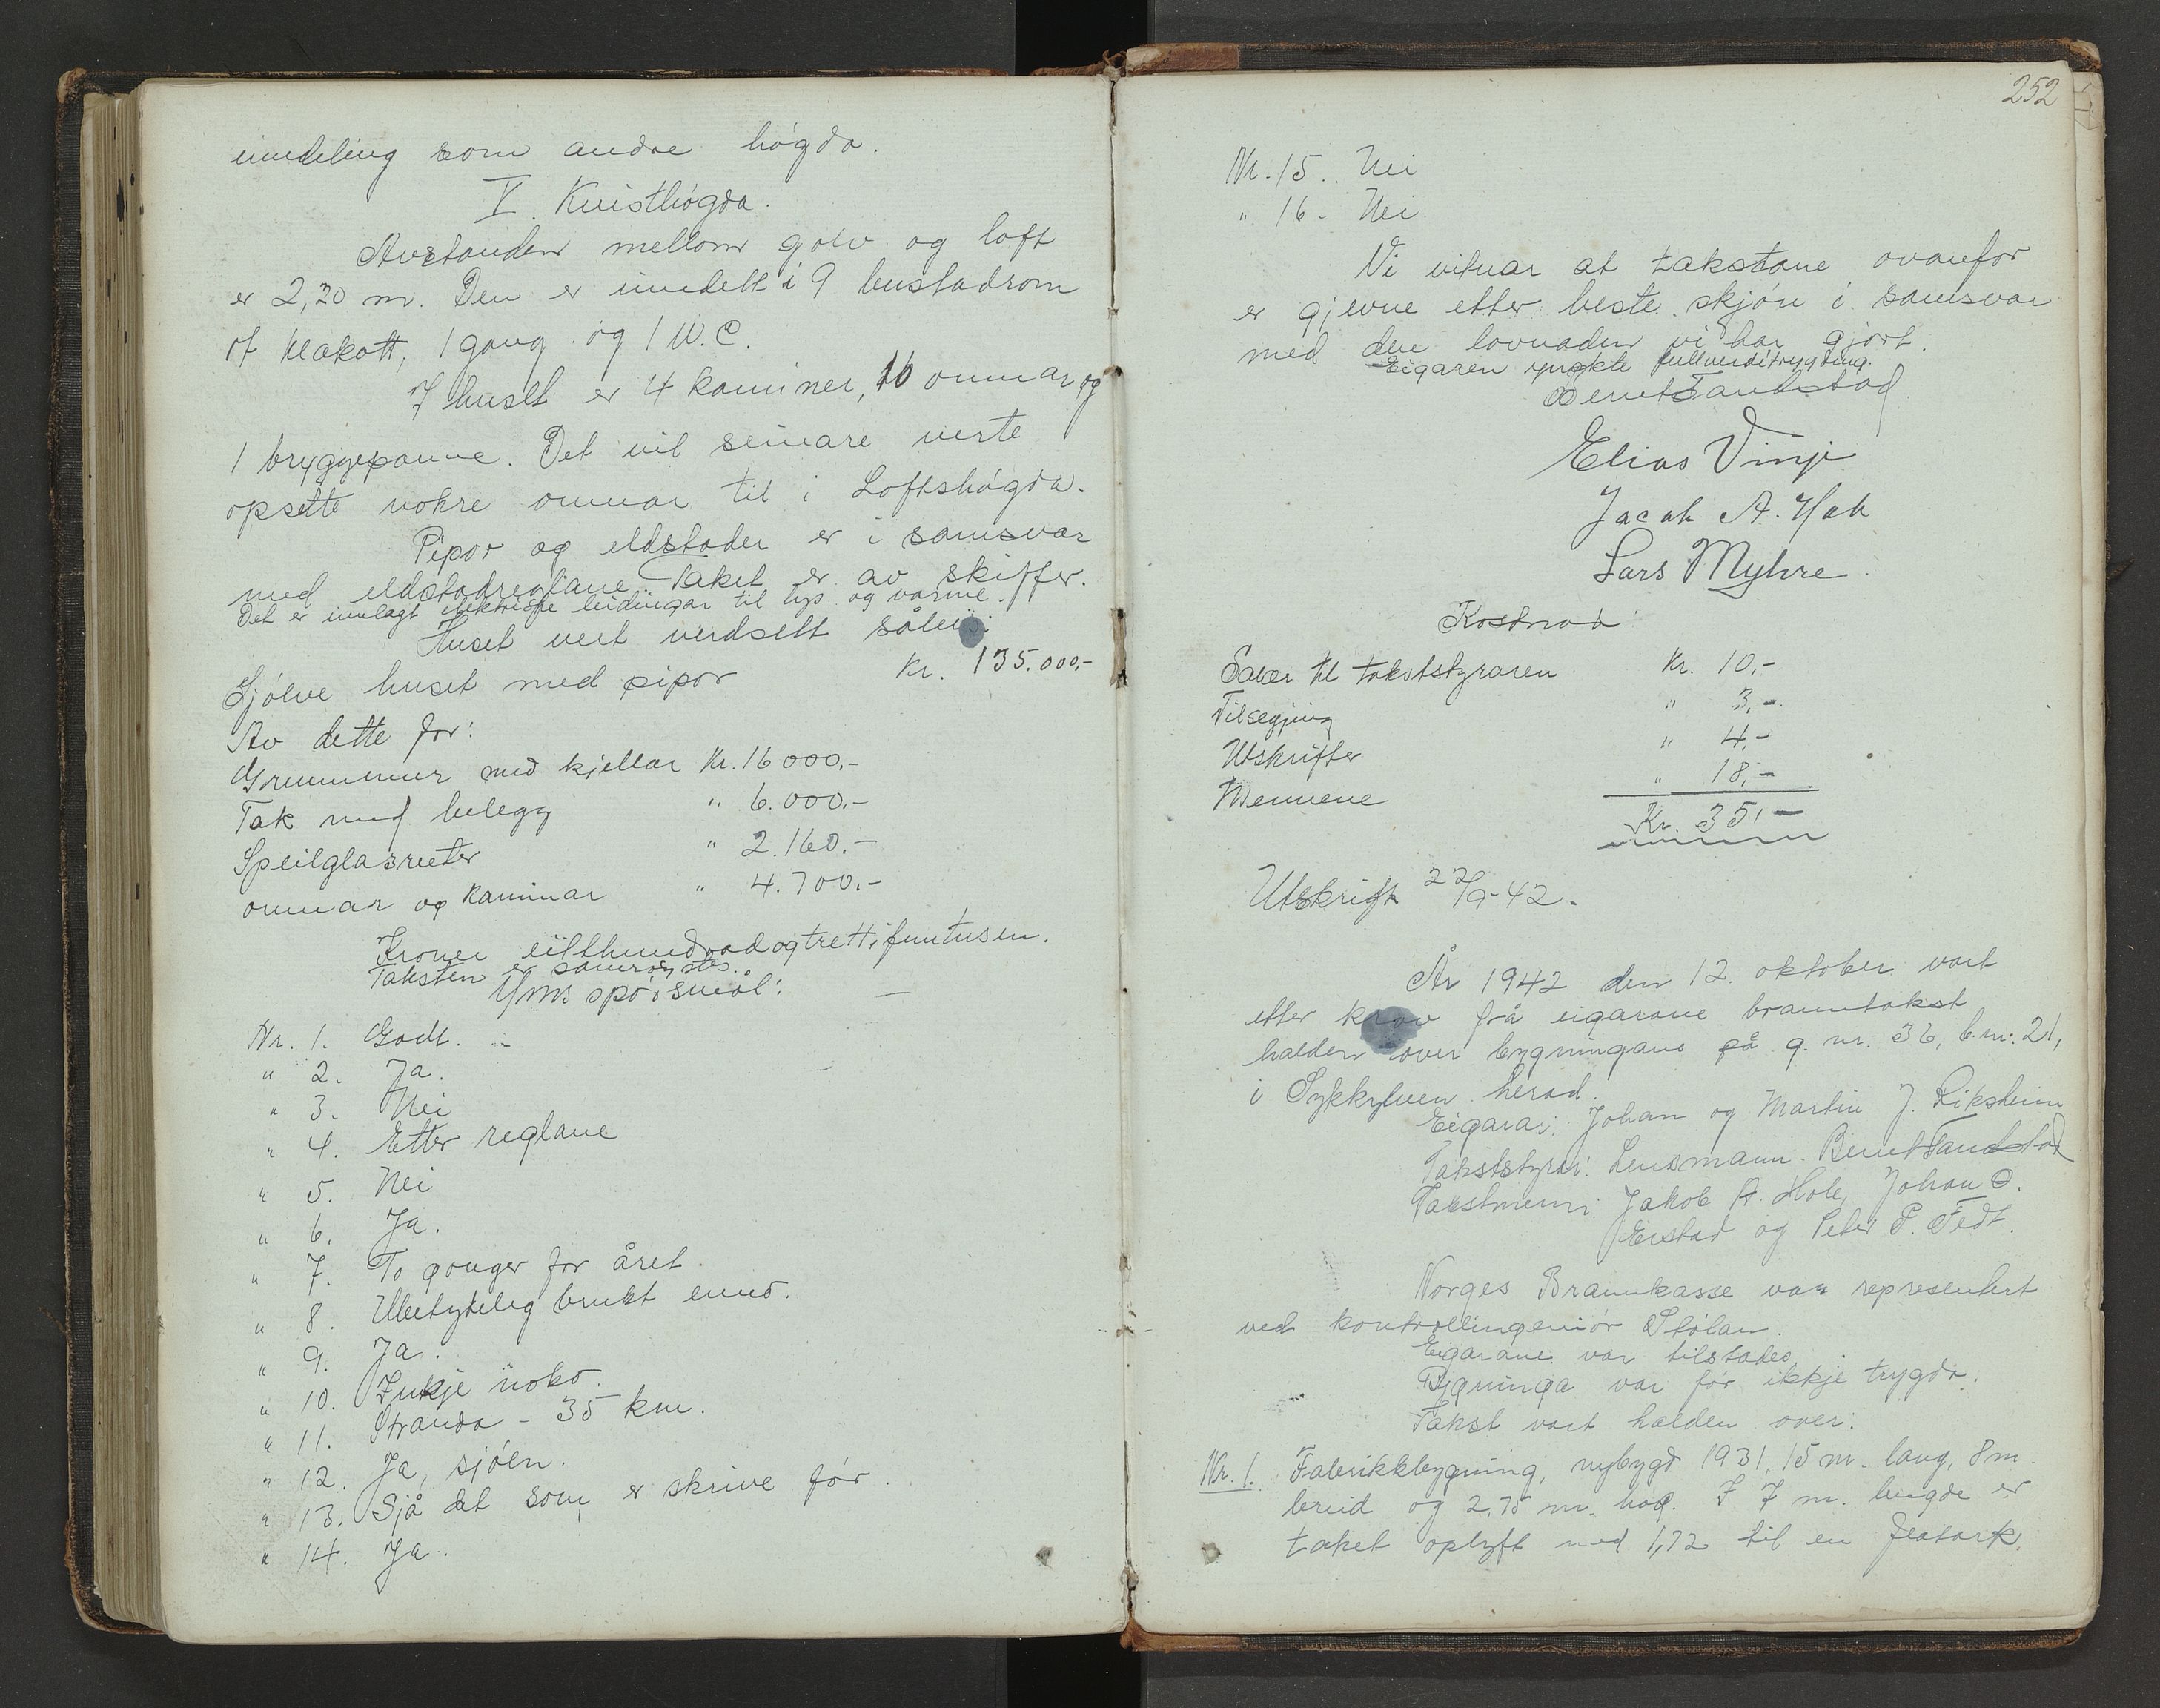 inndeling som andre høgda.
V. Kvisthøgda.
Avstanden mellom golv og loft
er 2,20 m. Den er inndelt i 9 bustadrom
1 klækott, 1 gang og 1 W.C.
I huset er 4 kaminer, 10 omnar og
1 bryggjepanne. Det vil seinare verte
opsette nokre omnar til i Loftshøgda.
Pipor og eldstader er i samsvar
med eldstadreglane. Taket er av skiffer.
Det er innlagt elektriske leidingar til lys og varme.
Huset vert verdsett såleis:
Sjølve huset med pipor Kr. 135.000,-
Av dette for:
Grunnmur med kjellar Kr. 16 000,-
Tak med belegg " 6.000.-
Speilglasruter " 2.160.-
omnar og kaminar " 4.700.-
Kroner eitthundradogtrettifemtusen.
Taksten er samrøystes.
Yms spørsmål:
Nr. 1. Godt.
" 2. Ja.
" 3. Nei
" 4. Etter reglane
" 5. Nei
" 6. Ja.
" 7. To gonger for året.
" 8. Ubetydeleg brukt emne.
" 9. Ja.
" 10. Inkje noko.
" 11. Stranda - 35 km.
" 12. Ja, sjøen.
" 13. Sjå det som er skrive før.
" 14. Ja.
252
Nr. 15. Nei
" 16. Nei
Vi vitnar at takstane ovanfor
er gjevne etter beste skjøn i samsvar
med den lovnaden vi har gjort.
Eigaren ynskte fullverditrygding.
Bernt Tandstad
Elias Vinje
Jacob A. Hole
Lars Myhre.
Kostnad
Salær til takststyraren Kr. 10,-
Tilsegjing " 3,-
Utskrifter " 4,-
Mennene " 18,-
Kr. 35,-
Utskrift 22/9-42.
År 1942 den 12. oktober vart
etter krav frå eigarane branntakst
halden over bygningane på g. nr. 36, b.nr. 21,
i Sykkylven herad.
Eigarar: Johan og Martin J. Riksheim
Takststyrar: Lensmann Bernt Tandstad
Takstmenn: Jakob A. Hole, Johan O.
Erstad og Peter P. Fedt.
Norges Brannkasse var representert
ved kontrollingeniør Stølan.
Eigarane var tilstades
Bygninga var før ikkje trygda.
Takst vart halden over:
Nr. 1. Fabrikkbygning, nybygd 1931, 15 m. lang, 8 m.
breid og 2,75 m. høg. I 7 m. lengde er
taket oplyft med 1,72 til en flatark.